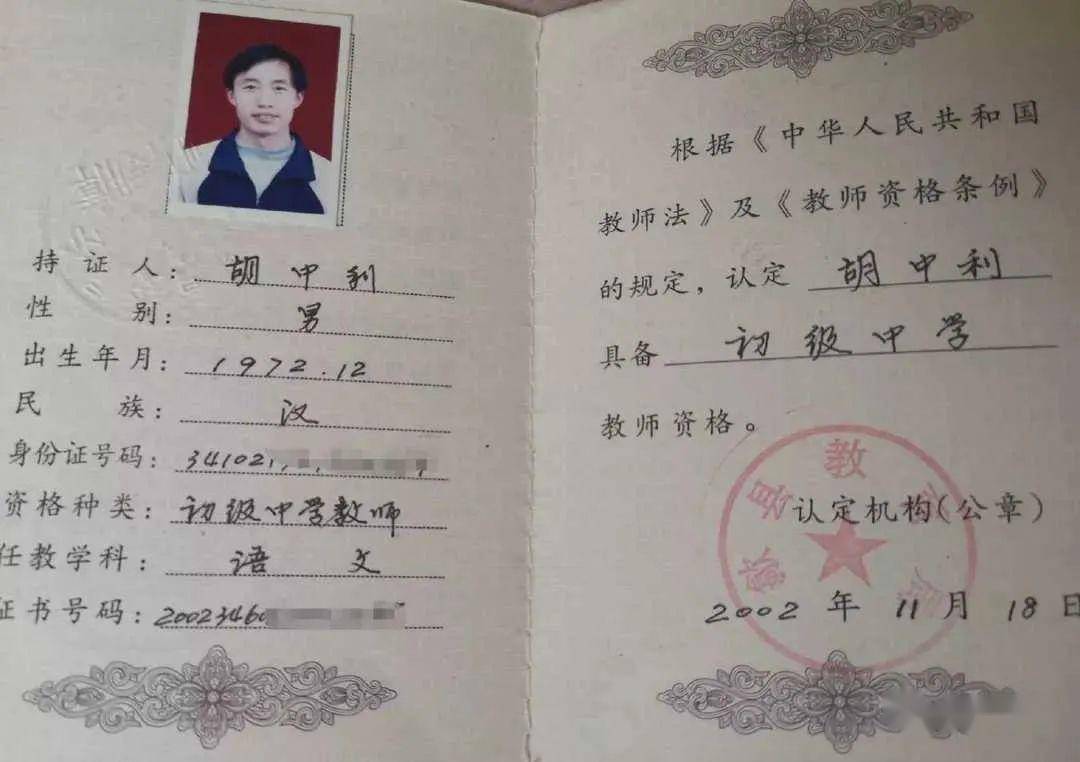 持证人：胡中利
性别：男
出生年月：1972.12
民族：汉
身份证号码：341021
资格种类：初级中学教师
任教学科：语文
证书号码：20023460
根据《中华人民共和国
教师法》及《教师资格条例》
的规定，认定 胡中利
具备 初级中学
教师资格。
县教
认定机构（公章）
2002年11月18日